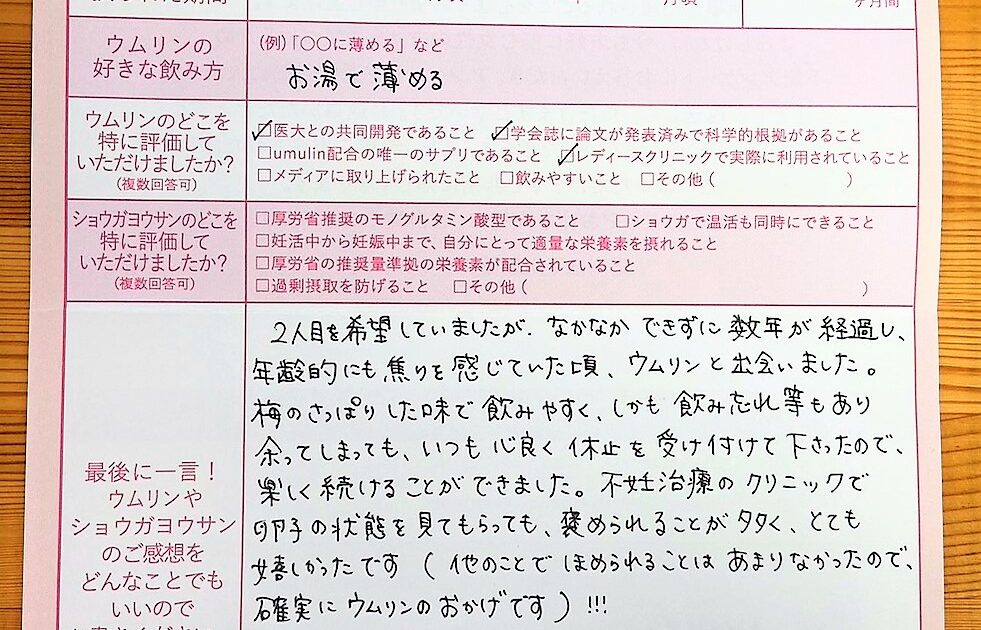 ヶ月間
ウムリンの
好きな飲み方
(例)「〇〇に薄める」など
お湯で薄める
ウムリンのどこを
特に評価して
いただけましたか?
(複数回答可)
☑医大との共同開発であること ☑学会誌に論文が発表済みで科学的根拠があること
☐umulin配合の唯一のサプリであること ☑レディースクリニックで実際に利用されていること
☐メディアに取り上げられたこと ☐飲みやすいこと ☐その他( )
ショウガヨウサンのどこを
特に評価して
いただけましたか?
(複数回答可)
☐厚労省推奨のモノグルタミン酸型であること ☐ショウガで温活も同時にできること
☐妊活中から妊娠中まで、自分にとって適量な栄養素を摂れること
☐厚労省の推奨量準拠の栄養素が配合されていること
☐過剰摂取を防げること ☐その他( )
最後に一言!
ウムリンや
ショウガヨウサン
のご感想を
どんなことでも
いいので
2人目を希望していましたが、なかなかできずに数年が経過し、
年齢的にも焦りを感じていた頃、ウムリンと出会いました。
梅のさっぱりした味で飲みやすく、しかも飲み忘れ等もあり
余ってしまっても、いつも心良く休止を受け付けて下さったので、
楽しく続けることができました。不妊治療のクリニックで
卵子の状態を見てもらっても、褒められることが多く、とても
嬉しかったです(他のことでほめられることはあまりなかったので、
確実にウムリンのおかげです)!!!